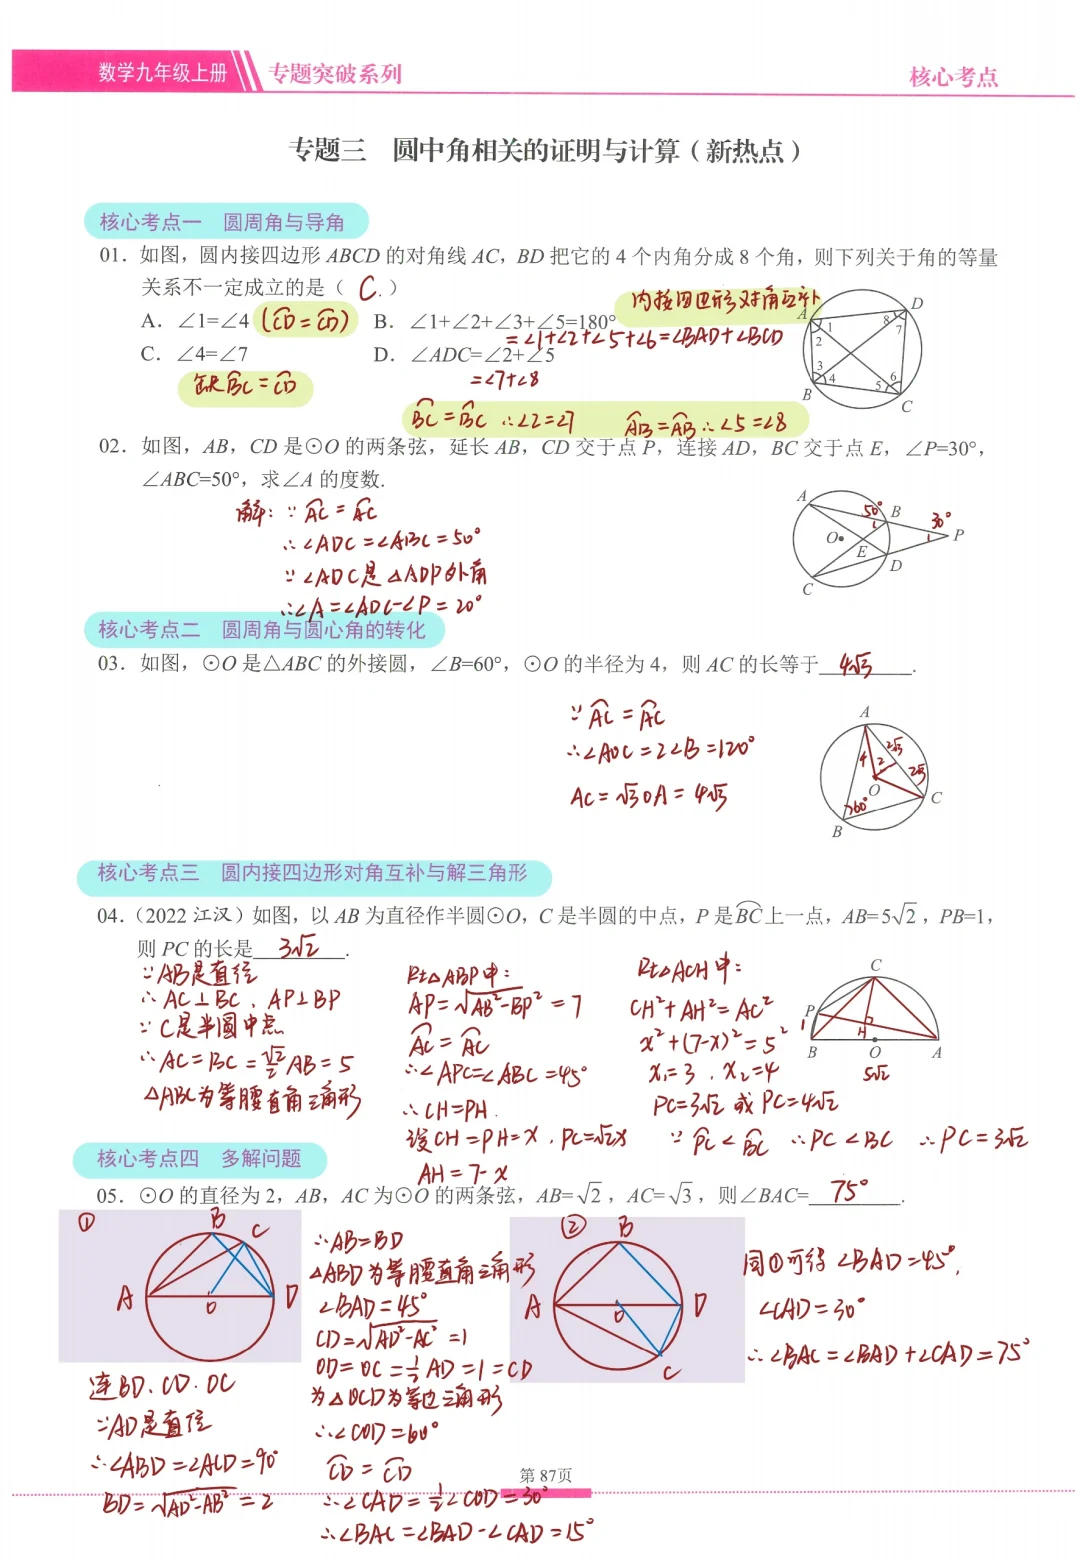 数学九年级上册 专题突破系列 核心考点
专题三 圆中角相关的证明与计算(新热点)
核心考点一 圆周角与导角
01. 如图,圆内接四边形 ABCD 的对角线 AC,BD 把它的 4 个内角分成 8 个角,则下列关于角的等量
关系不一定成立的是( C. )
内接四边形对角互补
A. ∠1=∠4 (⌒CD=⌒CD) B. ∠1+∠2+∠3+∠5=180°
=∠1+∠2+∠5+∠6=∠BAD+∠BCD
C. ∠4=∠7 D. ∠ADC=∠2+∠5
缺⌒BC=⌒CD =∠7+∠8
⌒BC=⌒BC ∴∠2=∠7 ⌒AB=⌒AB ∴∠5=∠8
A D 1 2 3 4 5 6 7 8 B C
02. 如图,AB,CD 是⊙O 的两条弦,延长 AB,CD 交于点 P,连接 AD,BC 交于点 E,∠P=30°,
∠ABC=50°,求∠A 的度数.
解:∵⌒AC=⌒AC
∴∠ADC=∠ABC=50°
∵∠ADC是△ADP外角
∴∠A=∠ADC-∠P=20°
A 50° B 30° P O E D C
核心考点二 圆周角与圆心角的转化
03. 如图,⊙O 是△ABC 的外接圆,∠B=60°,⊙O 的半径为 4,则 AC 的长等于 4√3 .
∵⌒AC=⌒AC
∴∠AOC=2∠B=120°
AC=√3OA=4√3
A 4 2 2√3 2√3 O C 60° B
核心考点三 圆内接四边形对角互补与解三角形
04.(2022 江汉)如图,以 AB 为直径作半圆⊙O,C 是半圆的中点,P 是⌒BC上一点,AB=5√2,PB=1,
则 PC 的长是 3√2 .
∵AB是直径
∴AC⊥BC、AP⊥BP
∵C是半圆中点
∴AC=BC=√2/2AB=5
△ABC为等腰直角三角形
Rt△ABP中:
AP=√AB²-BP²=7
⌒AC=⌒AC
∴∠APC=∠ABC=45°
∴CH=PH.
设CH=PH=x,PC=√2x
AH=7-x
Rt△ACH中:
CH²+AH²=AC²
x²+(7-x)²=5²
x₁=3,x₂=4
PC=3√2 或 PC=4√2
∵⌒PC<⌒BC ∴PC<BC ∴PC=3√2
C P 1 H B O A 5√2
核心考点四 多解问题
05. ⊙O 的直径为 2,AB,AC 为⊙O 的两条弦,AB=√2,AC=√3,则∠BAC= 75° .
① B C A O D
连BD、CD、OC
∵AD是直径
∴∠ABD=∠ACD=90°
BD=√AD²-AB²=2
∴AB=BD
△ABD为等腰直角三角形
∠BAD=45°
CD=√AD²-AC²=1
OD=OC=½AD=1=CD
为△OCD为等边三角形
∴∠COD=60°
⌒CD=⌒CD
∴∠CAD=½∠COD=30°
∴∠BAC=∠BAD-∠CAD=15°
② B A O D C
同①可得∠BAD=45°,
∠CAD=30°
∴∠BAC=∠BAD+∠CAD=75°
第 87页